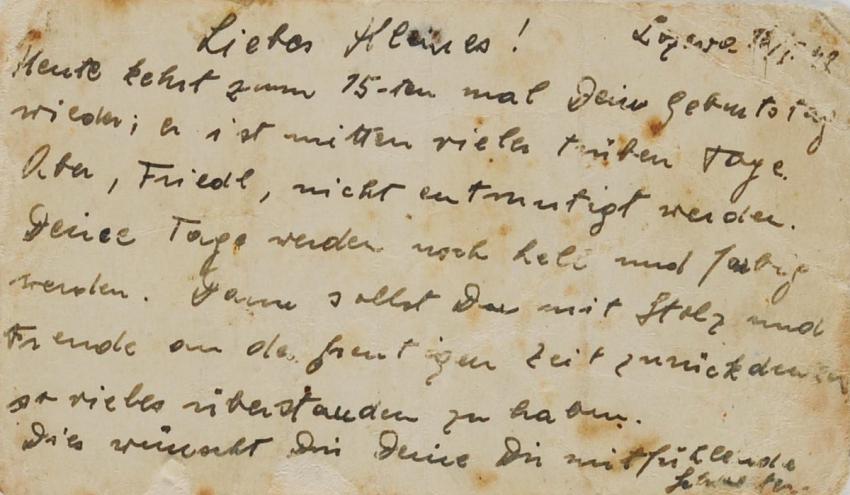 Liebes Kleines!
Heute kehrt zum 15-ten mal Dein Geburtstag
wieder; er ist mitten vieler trüben Tage.
Aber, Friedl, nicht entmutigt werden.
Deine Tage werden noch hell und farbig
werden. Dann sollst Du mit Stolz und
Freude an die Zeit zurückdenken
so vieles überstanden zu haben.
Dies wünscht Dir Deine Dir mitfühlende